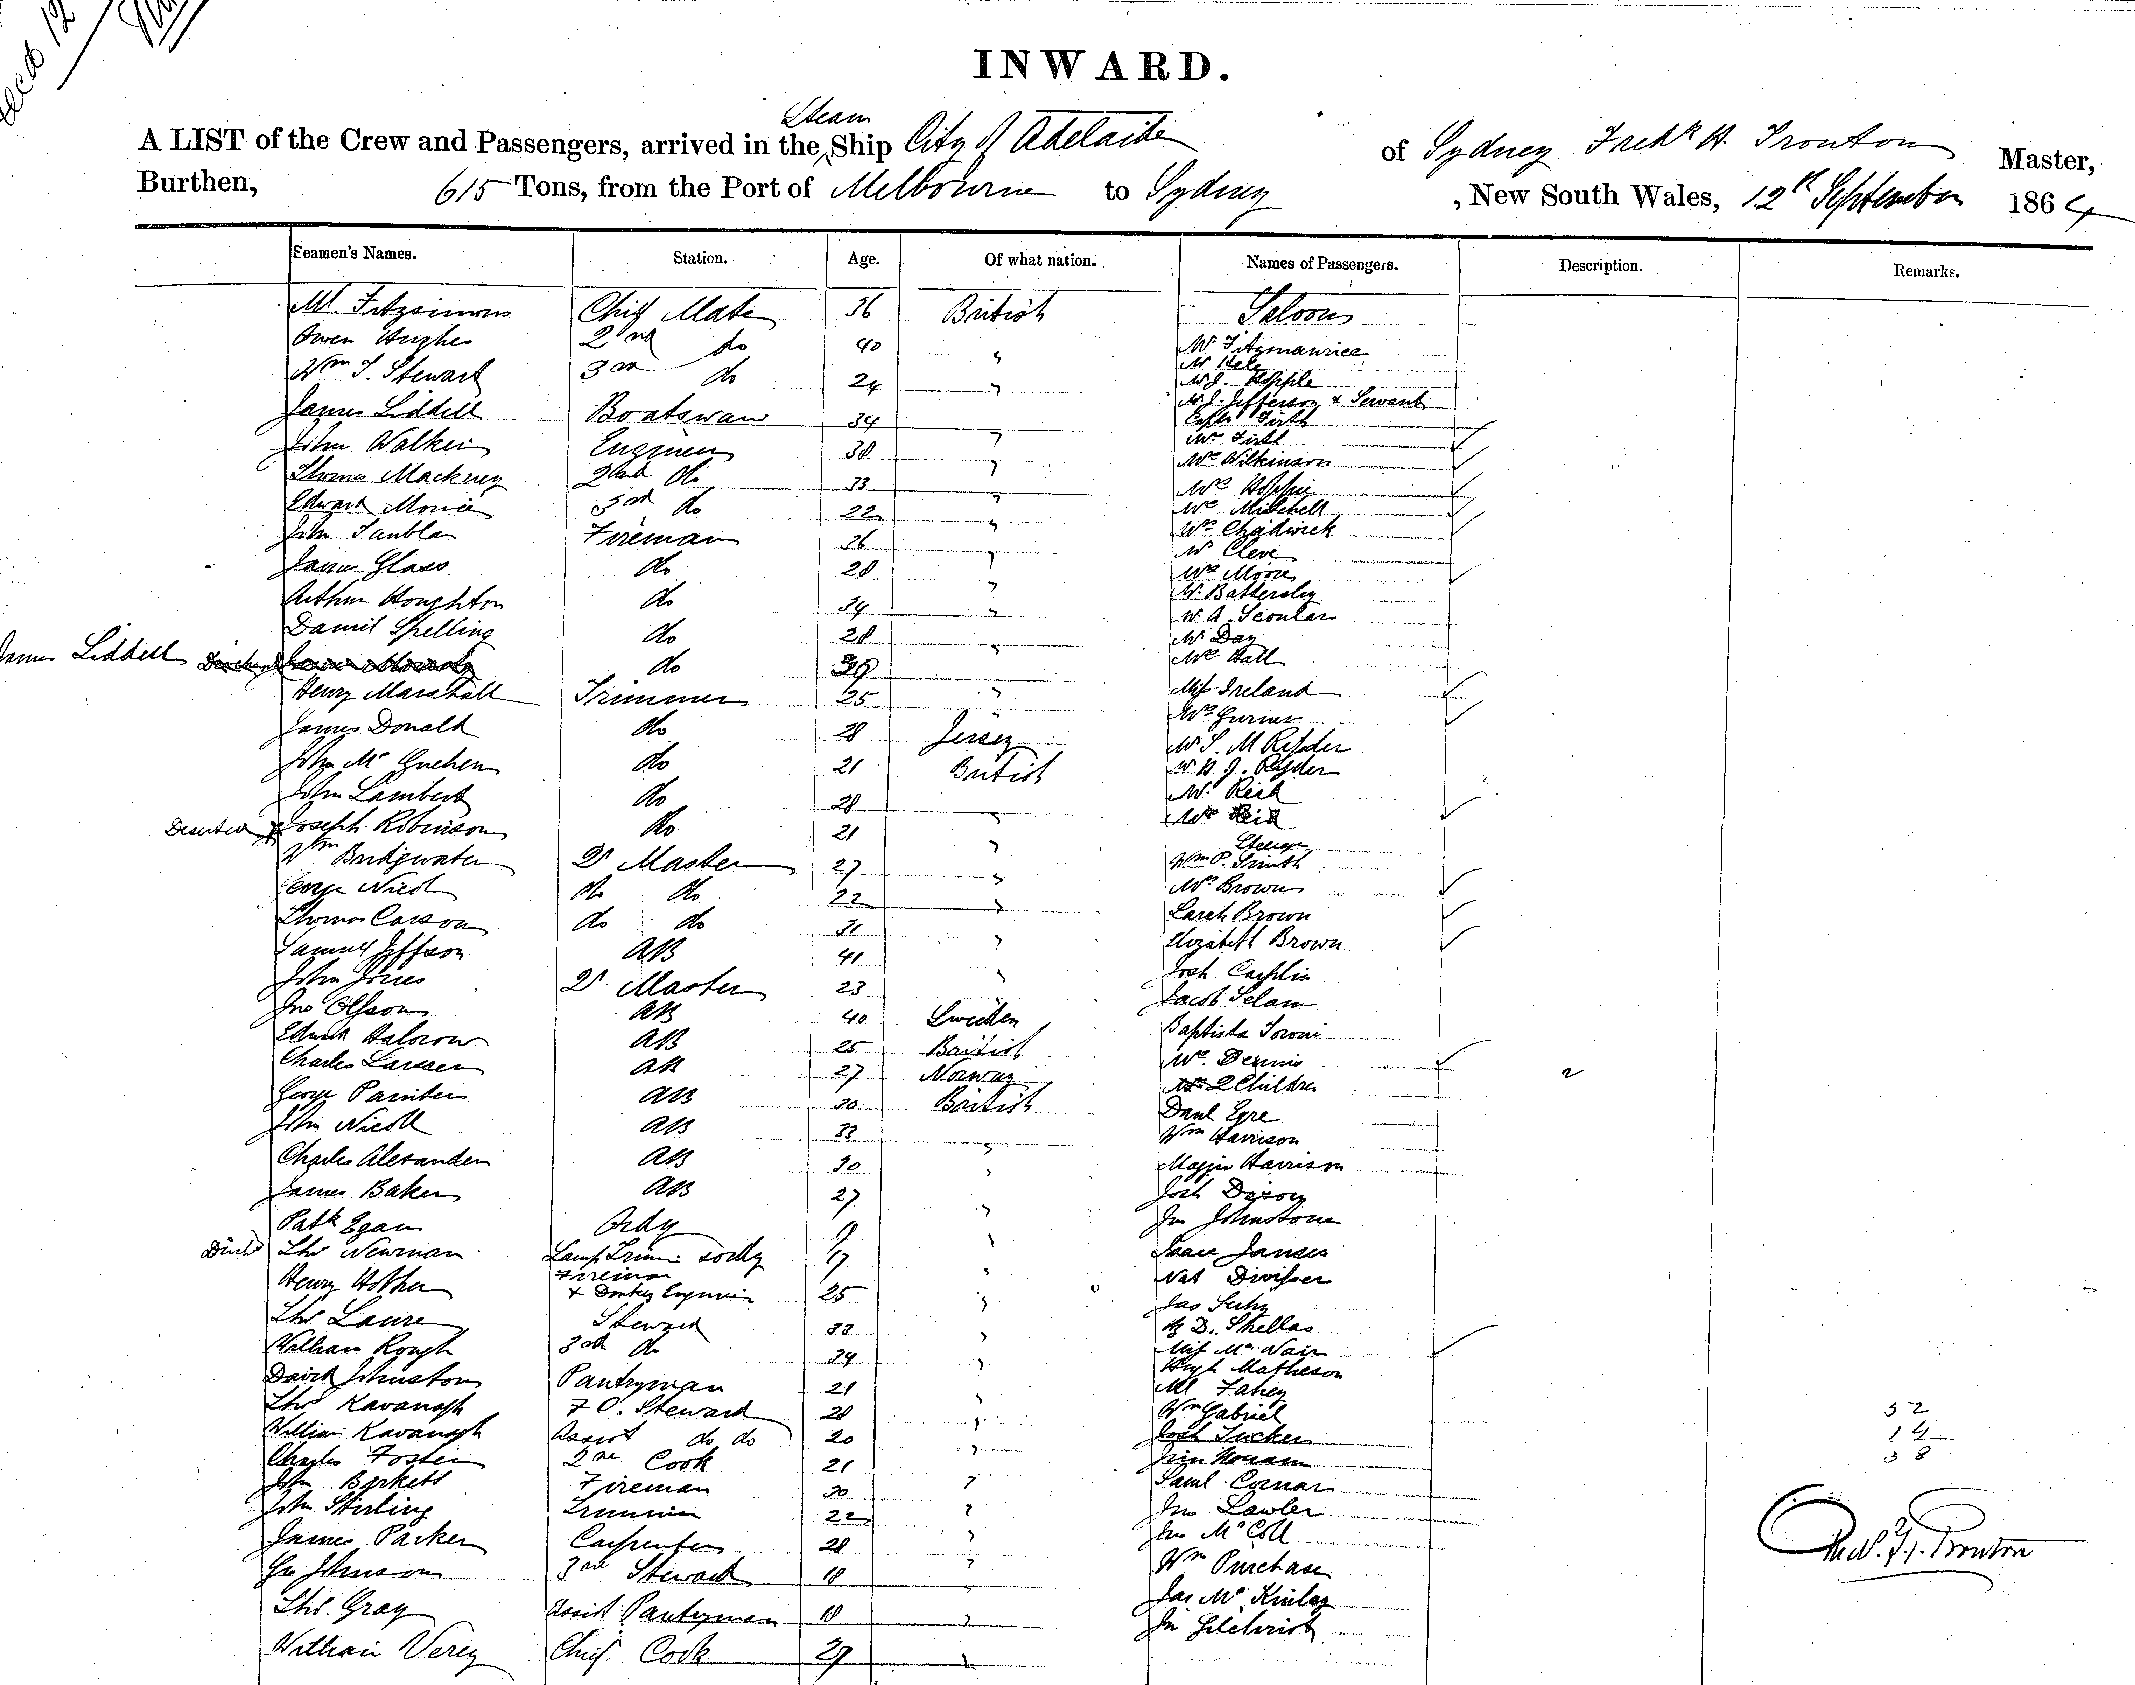 INWARD.
Steam
A LIST of the Crew and Passengers, arrived in the Ship City of Adelaide of Sydney Fredk H. Trouton Master,
Burthen, 615 Tons, from the Port of Melbourne to Sydney , New South Wales, 12th September 1864
Seamen's Names. Station. Age. Of what nation. Names of Passengers. Description. Remarks.
Ml Fitzsimons Chief Mate 36 British Saloon
Owen Hughes 2nd do 40 " Mr Fitzmaurice
Mr Hale
Wm T. Stewart 3rd do 24 "
James Liddell Boatswain 34 " Mr J. Jefferson & Servant
Capt Firth
John Walker Engineer 38 " Mrs Firth
Thomas Mackney 2nd do 33 " Mrs Wilkinson
Edward Morice 3rd do 22 " Mrs Mitchell
John Fireman 36 " Mrs Chadwick
Mr Cleve
James Glass do 28 " Mrs Moore
Arthur Houghton do 34 " Mr Battersby
Mr A. Scoular
Daniel Spelling do 28 " Mr Day
James Liddell do 39 Mrs Hall
Henry Marshall Trimmer 25 " Miss Ireland
James Donald do 28 Jersey Mrs Gurner
Mr S. M Ryder
John Mc Guehen do 21 British Mr H. J. Ryder
John Lambert do 28 " Mr Reid
Mrs Reid
Deserted Joseph Robinson do 21 " Steerage
Wm Bridgwater Qr Master 27 " Wm P. Smith
George Nicol do do 22 " Mrs Brown
Thomas Carson do do 31 " Sarah Brown
Samuel Jeffson AB 41 " Elizabeth Brown
John Jones Qr Master 23 " Josh Carplin
Jno Olfson AB 40 Sweden Jacob Selam
Edward Halcrow AB 25 British Baptista Soroni
Charles Larsen AB 27 Norway Mrs Dennis
George Painter AB 30 British 2 Children
John Nicoll AB 33 " Danl Eyre
Wm Harrison
Charles Alexander AB 30 " Maggie Harrison
James Baker AB 27 " Josh Dixon
Patk Egan Ordy " Jno Johnstone
Thos Newman Lamp Trimr 17 " Isaac Jansen
Henry Hother Fireman & Donkey Engineer 25 "
Thos Laure Steward 33 " D. Shellas
William Rough 3rd do 34 " Miss Mc Nair
Hugh Matheson
David Johnston Pantryman 21 " Ml Fahey
Thos Kavanagh F C. Steward 28 " Wm Gabriel
William Kavanagh Assist do do 20 " Josh Tucker
Charles Foster 2nd Cook 21 "
John Barkett Fireman 30 "
John Stirling Trimmer 22 " Jno Lawler
James Parker Carpenter 28 " Jno Mc Coll
Geo Johnson 3rd Steward 18 " Wm Purchase
Thos Gray Assist Pantryman 18 " Jas Mc Kinlay
William Verey Chief Cook 29 " Jno Gilchrist
52
14
38
Fred. H. Trouton